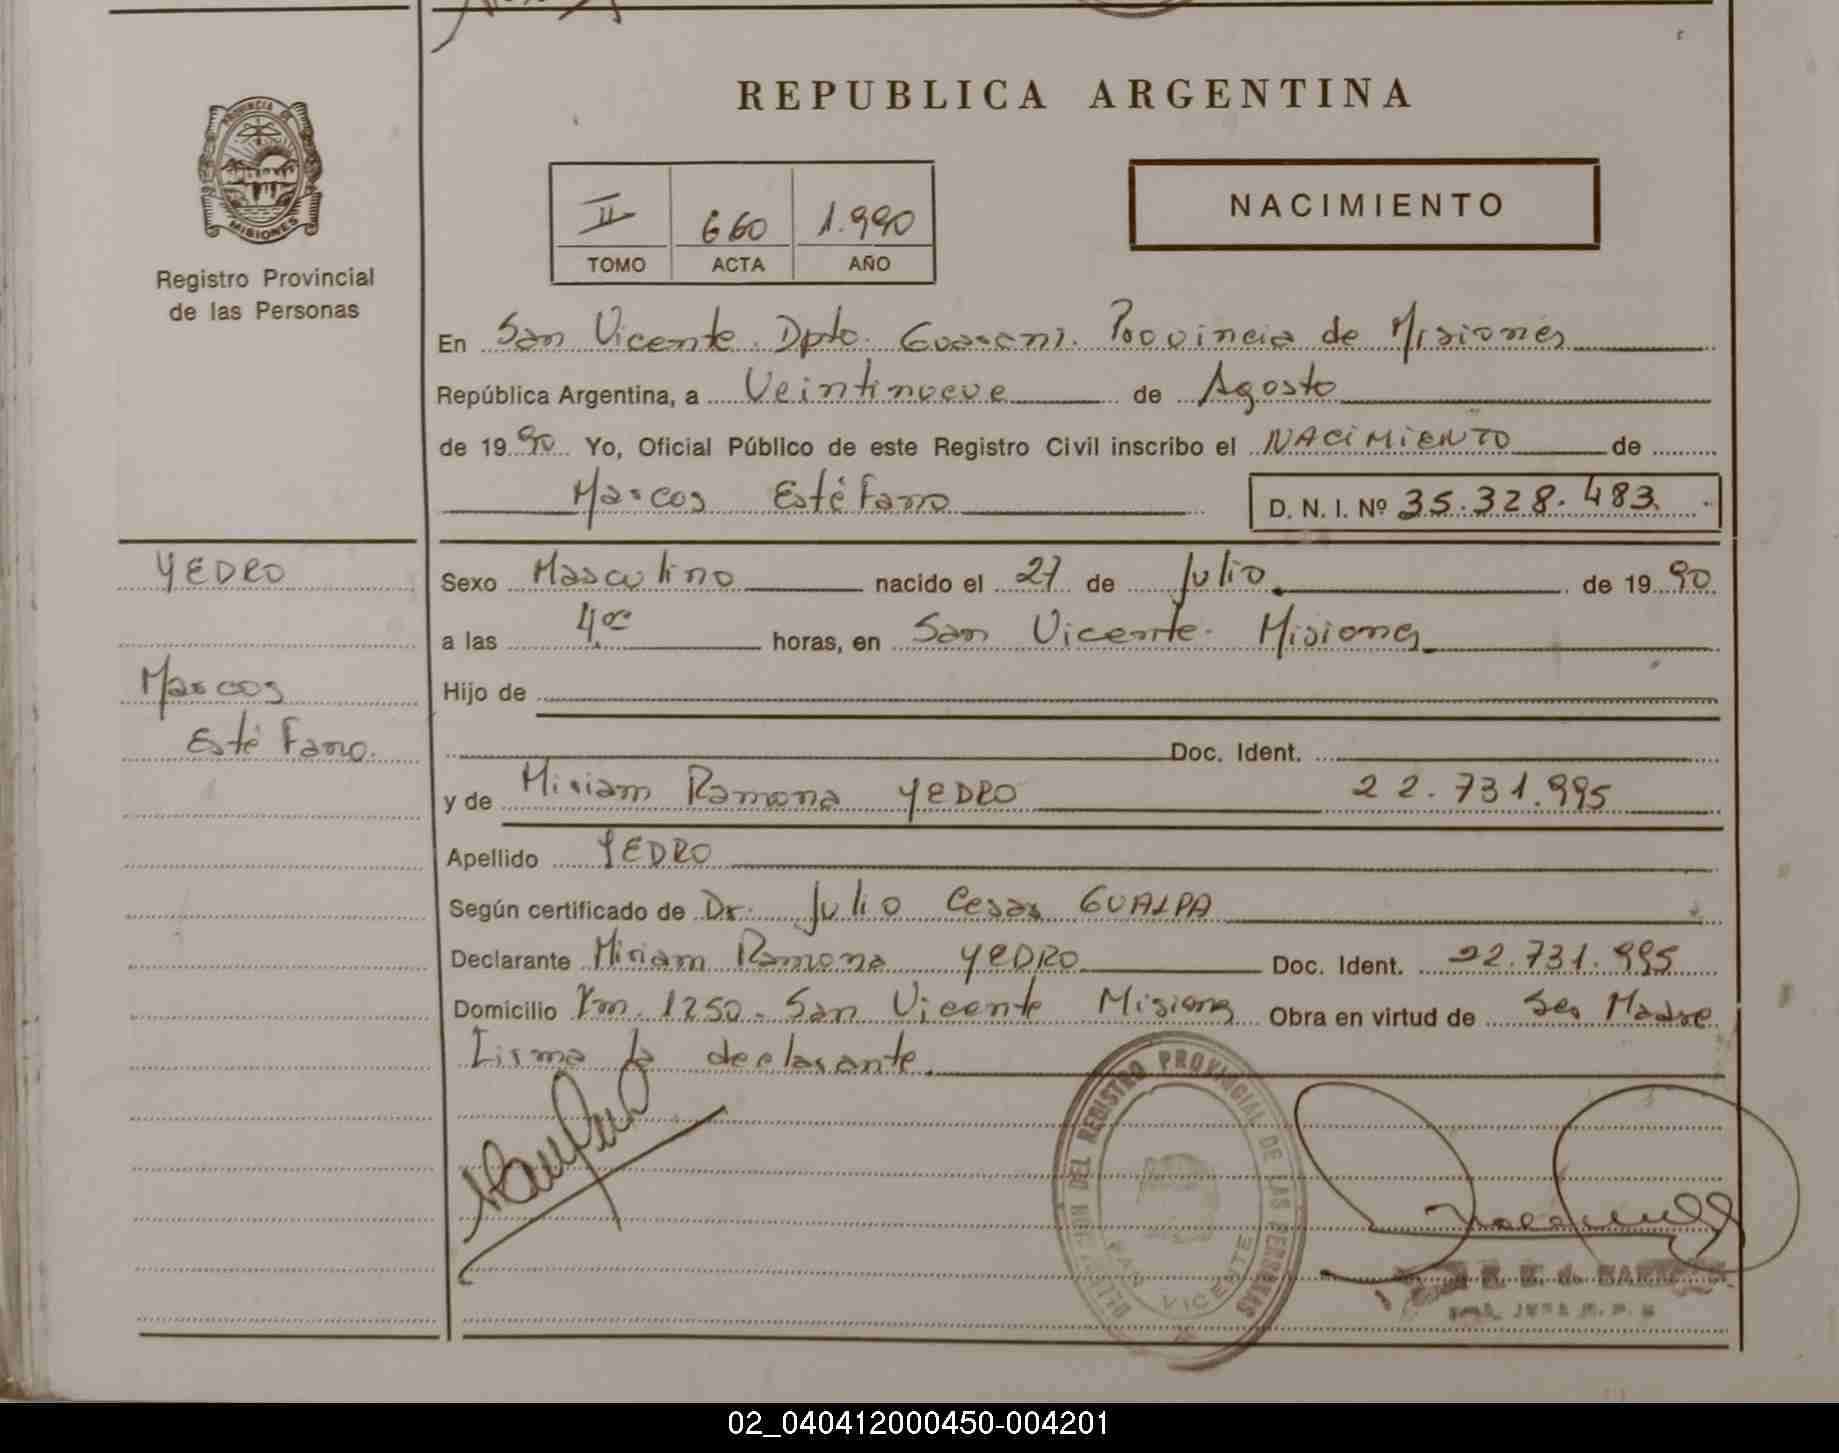 REPUBLICA ARGENTINA
PROVINCIA DE
MISIONES
Registro Provincial
de las Personas
II 660 1.990
TOMO ACTA AÑO
NACIMIENTO
En San Vicente. Dpto. Guarani. Provincia de Misiones
República Argentina, a Veintinueve de Agosto
de 1990 Yo, Oficial Público de este Registro Civil inscribo el NACIMIENTO de
Marcos Estéfano D. N. I. Nº 35.328.483.
YEDRO
Sexo Masculino nacido el 27 de Julio de 1990
a las 4 horas, en San Vicente. Misiones
Marcos
Hijo de
Estéfano.
Doc. Ident.
y de Miriam Ramona YEDRO 22.731.995
Apellido YEDRO
Según certificado de Dr. Julio Cesar GUALPA
Declarante Miriam Ramona YEDRO Doc. Ident. 22.731.995
Domicilio Km. 1250. San Vicente Misiones Obra en virtud de Ser Madre
Firma la declarante.
DEL REGISTRO PROVINCIAL DE LAS PERSONAS
SAN VICENTE
02_040412000450-004201